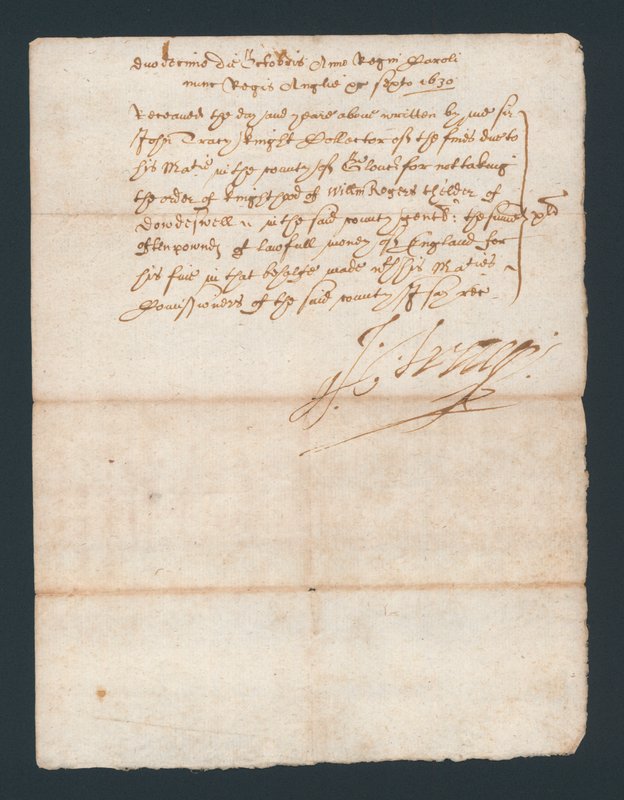 duodecimo die Octobris Anno Regni Caroli
nunc Regis Anglie &c sexto 1630
Receaued the day and yeare aboue written by me Sir
John Tracy knight Collector of the fines due to
his Matie in the county of Glouc for not taking
the order of knighthood of Willm Rogers the elder of
Dowdeswell in the said county gent the summe xli
of ten pownds of lawfull money of England for
his fine in that behalfe made wth his Maties
Comissioners of the said county I say rec
Jo: Tracy